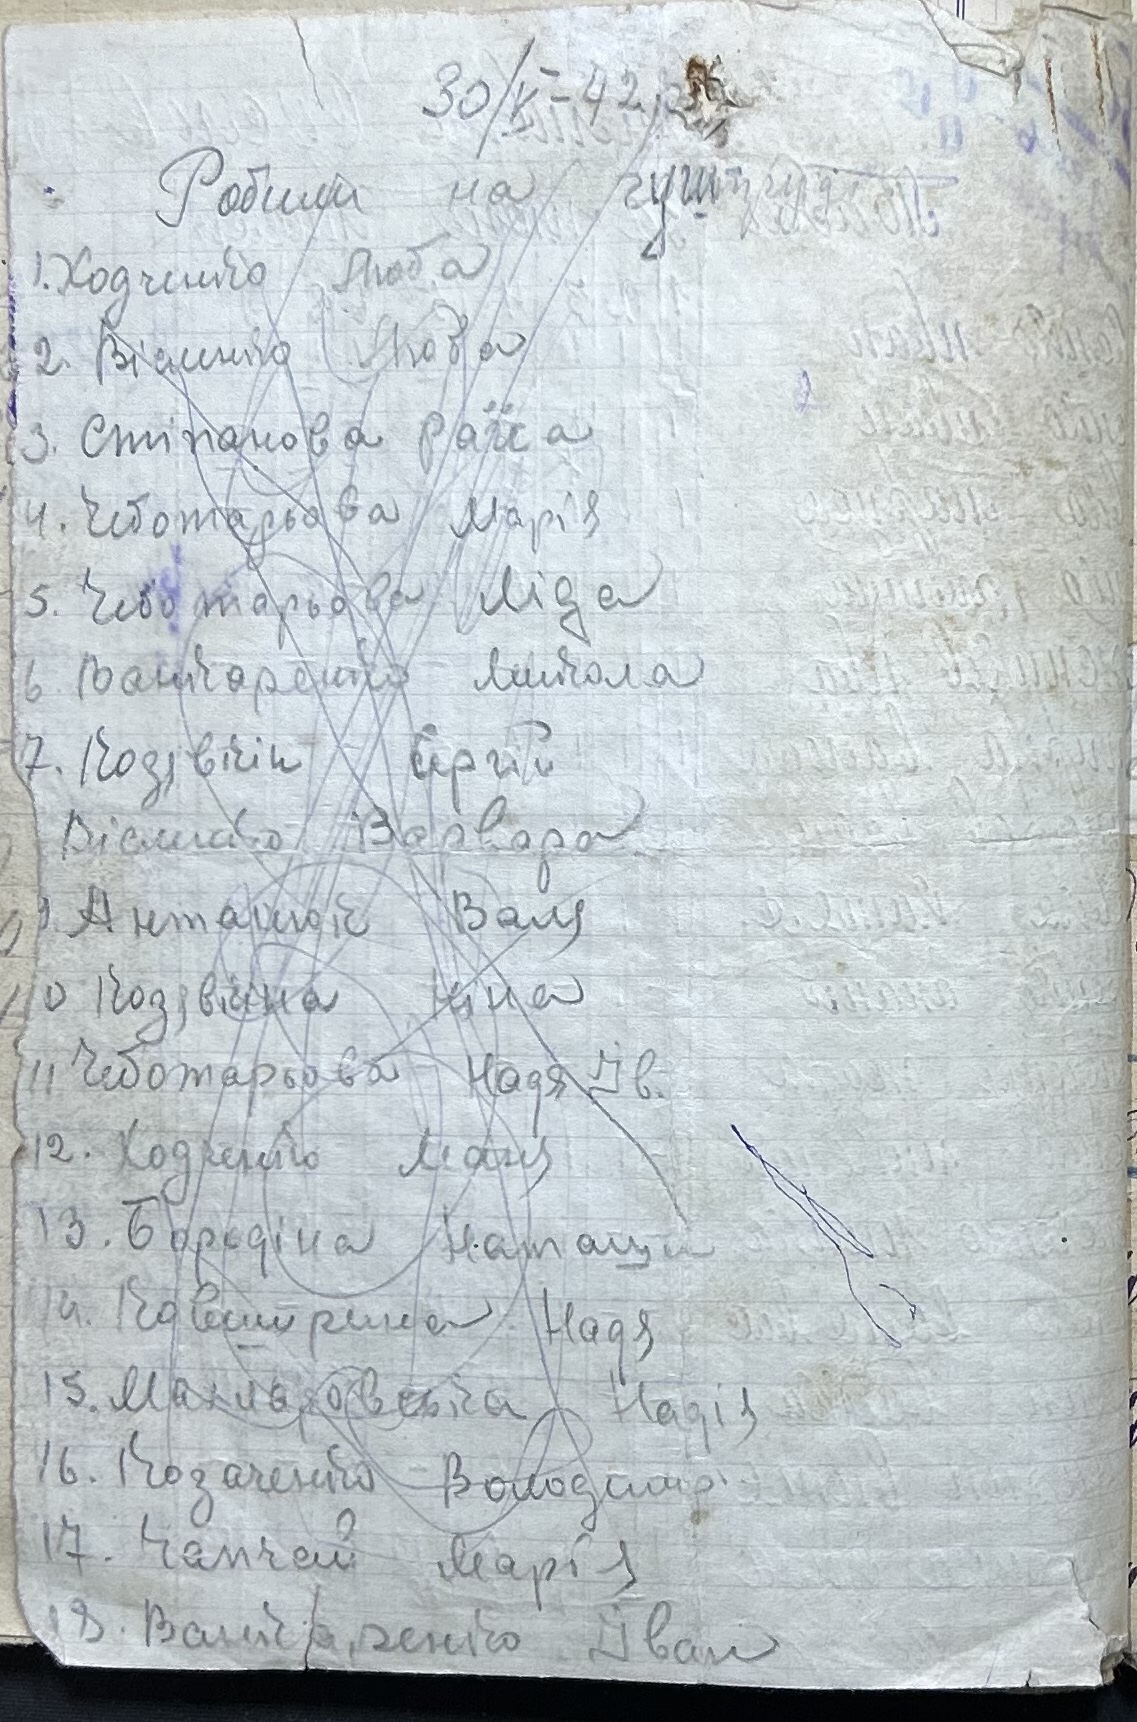 30/V-42
Робили на
1. Ходченко Люба
2. Вієнко Люба
3. Стіпанова Раїса
4. Чеботарьова Марія
5. Чеботарьова Ліда
6. Ванчаренко Микола
7. Козявкін Сергій
Варвара
Антанюк Валя
10 Козявкіна Ніна
11 Чеботарьова Надя Ів.
12. Ходченко Маня
13. Бородіна Наташа
14. Надя
15. Надія
16. Козаченко Володимир
17. Чапчай Марія
18. Ванчаренко Іван